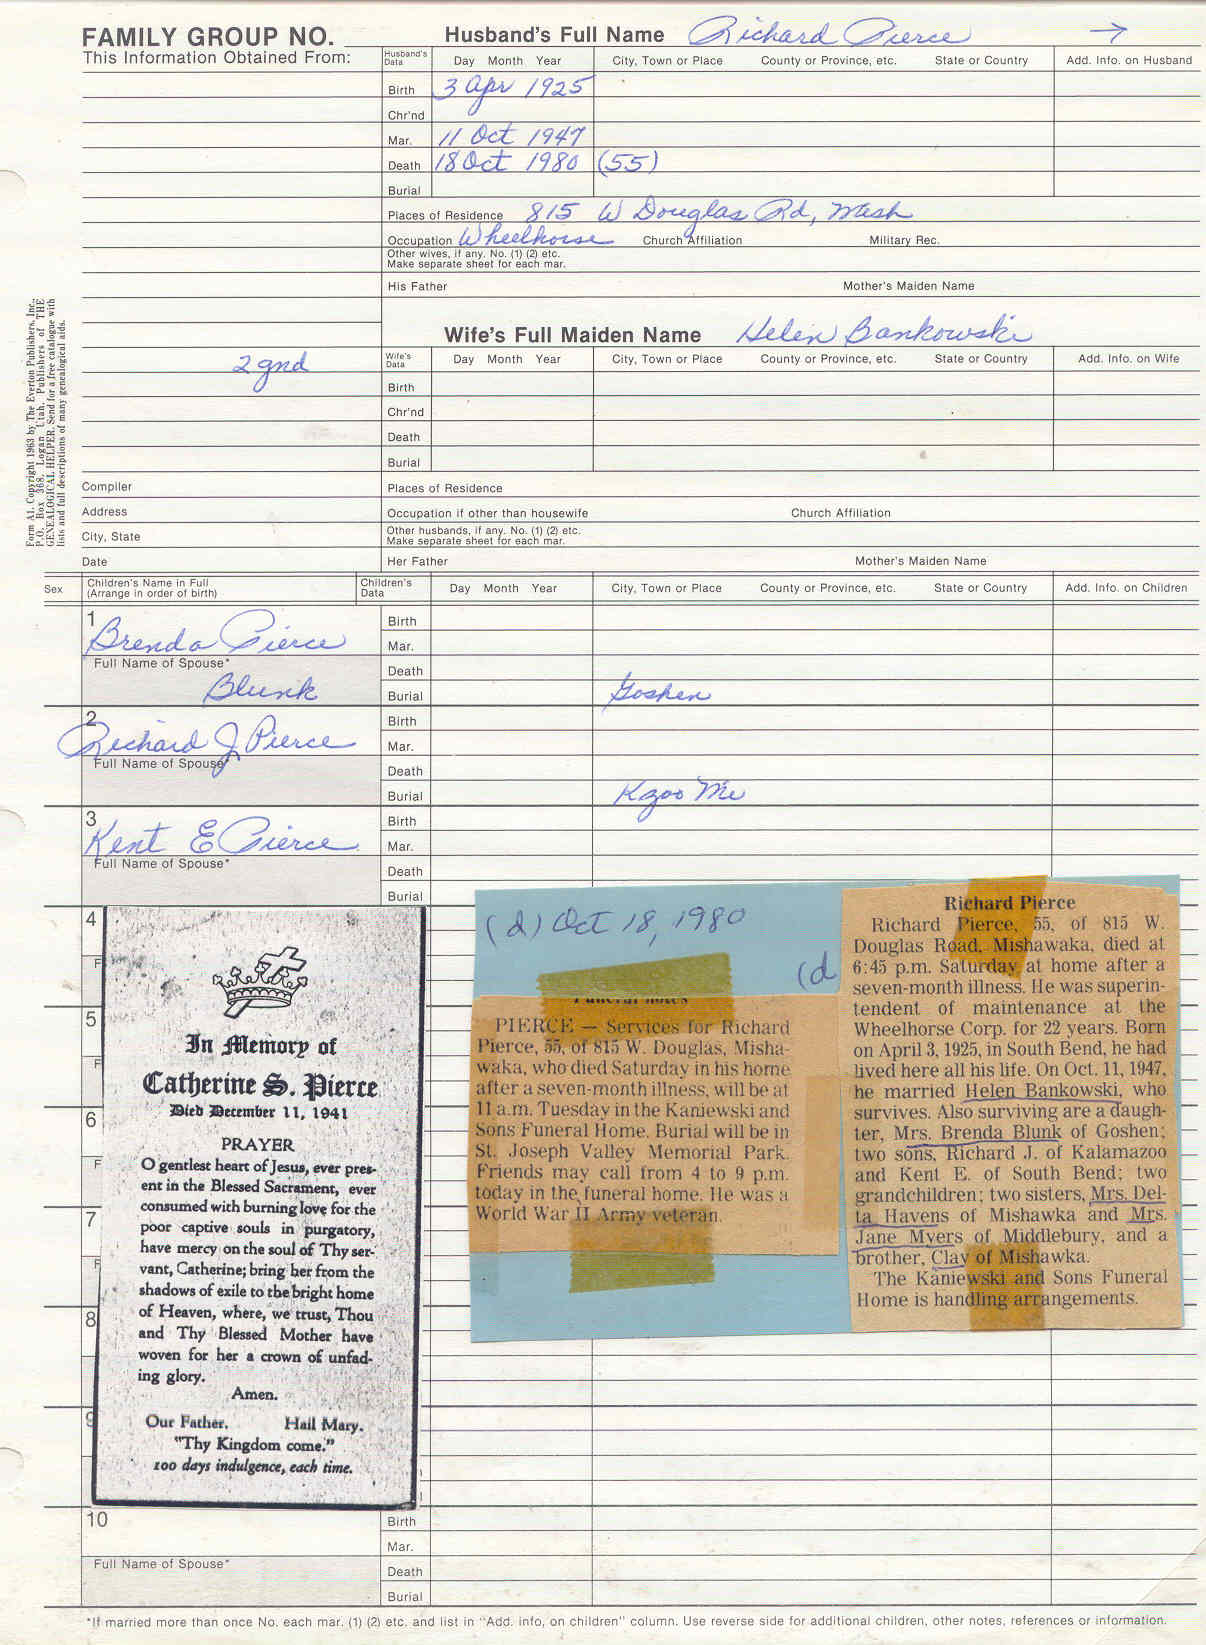 FAMILY GROUP NO.
This Information Obtained From:
Husband's Full Name Richard Pierce →
Husband's Data Day Month Year City, Town or Place County or Province, etc. State or Country Add. Info. on Husband
Birth 3 Apr 1925
Chr'nd
Mar. 11 Oct 1947
Death 18 Oct 1980 (55)
Burial
Places of Residence 815 W Douglas Rd, Mish
Occupation Wheelhorse Church Affiliation Military Rec.
Other wives, if any. No. (1) (2) etc.
Make separate sheet for each mar.
His Father Mother's Maiden Name
Wife's Full Maiden Name Helen Bankowski
2 gnd
Wife's Data Day Month Year City, Town or Place County or Province, etc. State or Country Add. Info. on Wife
Birth
Chr'nd
Death
Burial
Compiler
Places of Residence
Address
Occupation if other than housewife Church Affiliation
City, State
Other husbands, if any. No. (1) (2) etc.
Make separate sheet for each mar.
Date
Her Father Mother's Maiden Name
Form A1. Copyright 1963 by The Everton Publishers, Inc.,
P.O. Box 368, Logan Utah. Publishers of THE
GENEALOGICAL HELPER. Send for a free catalogue with
lists and full descriptions of many genealogical aids.
Sex Children's Name in Full (Arrange in order of birth) Children's Data Day Month Year City, Town or Place County or Province, etc. State or Country Add. Info. on Children
1
Brenda Pierce
Full Name of Spouse*
Blunk
Birth
Mar.
Death
Burial Goshen
2
Richard J Pierce
Full Name of Spouse
Birth
Mar.
Death
Burial Kzoo Mi
3
Kent E Pierce
Full Name of Spouse*
Birth
Mar.
Death
Burial
4
F
5
F
6
F
7
F
8
9
In Memory of
Catherine S. Pierce
Died December 11, 1941
PRAYER
O gentlest heart of Jesus, ever pres-
ent in the Blessed Sacrament, ever
consumed with burning love for the
poor captive souls in purgatory,
have mercy on the soul of Thy ser-
vant, Catherine; bring her from the
shadows of exile to the bright home
of Heaven, where, we trust, Thou
and Thy Blessed Mother have
woven for her a crown of unfad-
ing glory.
Amen.
Our Father. Hail Mary.
"Thy Kingdom come."
100 days indulgence, each time.
(d) Oct 18, 1980
(d
Funeral notes
PIERCE — Services for Richard
Pierce, 55, of 815 W. Douglas, Misha-
waka, who died Saturday in his home
after a seven-month illness, will be at
11 a.m. Tuesday in the Kaniewski and
Sons Funeral Home. Burial will be in
St. Joseph Valley Memorial Park.
Friends may call from 4 to 9 p.m.
today in the funeral home. He was a
World War II Army veteran.
Richard Pierce
Richard Pierce, 55, of 815 W.
Douglas Road, Mishawaka, died at
6:45 p.m. Saturday at home after a
seven-month illness. He was superin-
tendent of maintenance at the
Wheelhorse Corp. for 22 years. Born
on April 3, 1925, in South Bend, he had
lived here all his life. On Oct. 11, 1947,
he married Helen Bankowski, who
survives. Also surviving are a daugh-
ter, Mrs. Brenda Blunk of Goshen;
two sons, Richard J. of Kalamazoo
and Kent E. of South Bend; two
grandchildren; two sisters, Mrs. Del-
ta Havens of Mishawka and Mrs.
Jane Myers of Middlebury, and a
brother, Clay of Mishawka.
The Kaniewski and Sons Funeral
Home is handling arrangements.
10
Full Name of Spouse*
Birth
Mar.
Death
Burial
*If married more than once No. each mar. (1) (2) etc. and list in "Add. info, on children" column. Use reverse side for additional children, other notes, references or information.